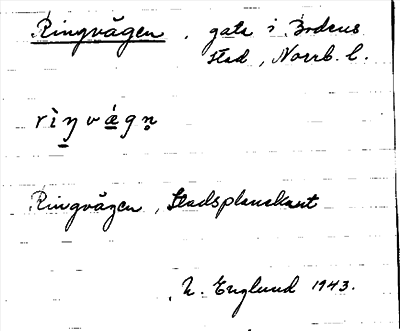 Ringvägen, gata i Bodens
stad, Norrb. l.
rìŋvǽgn̥
Ringvägen, Stadsplanekart
E. Englund 1943.